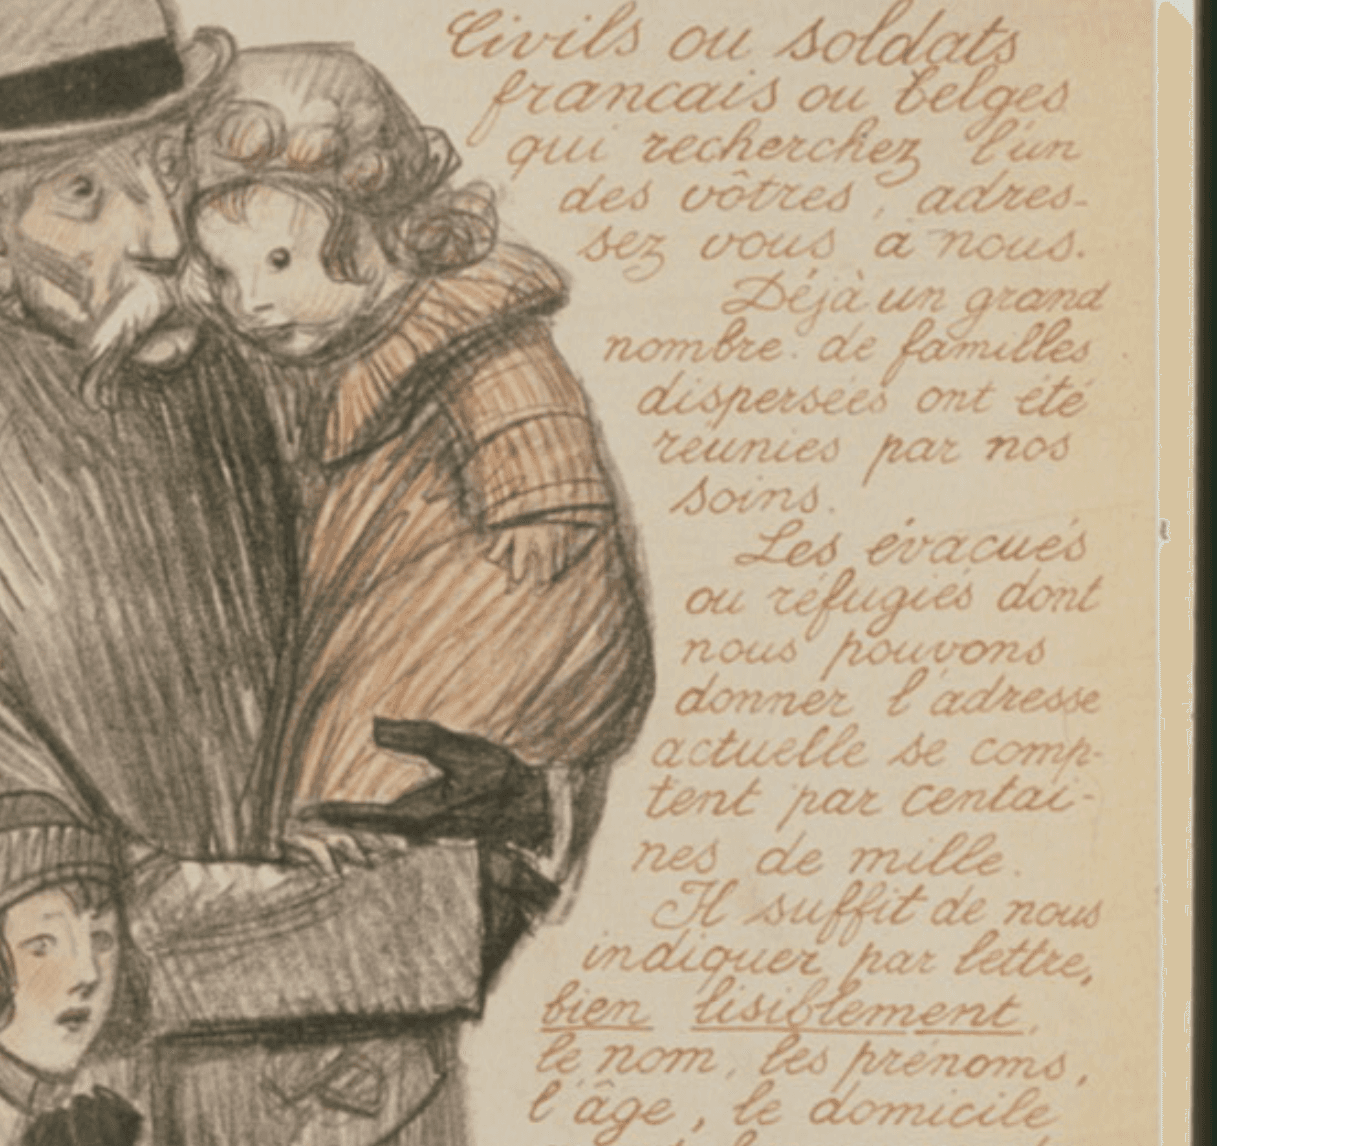 Civils ou soldats
francais ou belges
qui recherchez l'un
des vôtres, adres-
sez vous à nous.
Déjà un grand
nombre de familles
dispersées ont été
réunies par nos
soins.
Les évacués
ou réfugiés dont
nous pouvons
donner l'adresse
actuelle se comp-
tent par centai-
nes de mille.
Il suffit de nous
indiquer par lettre,
bien lisiblement,
le nom, les prénoms,
l'âge, le domicile